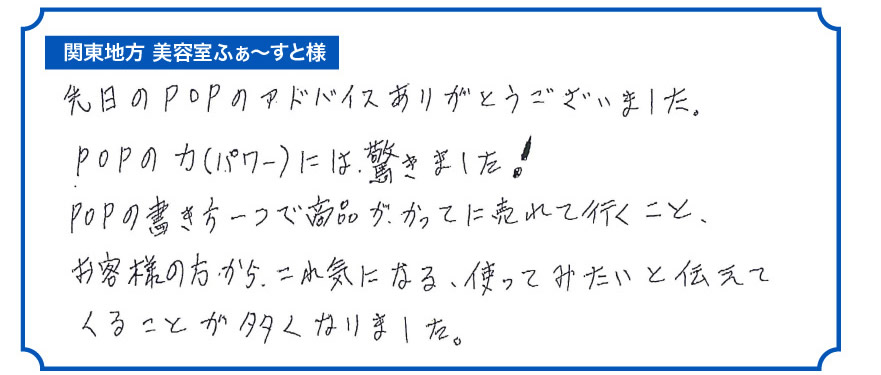 関東地方 美容室ふぁ～すと様
先日のPOPのアドバイスありがとうございました。
POPの力(パワー)には、驚きました!
POPの書き方一つで商品が、かってに売れて行くこと、
お客様の方から、これ気になる、使ってみたいと伝えて
くることが多くなりました。